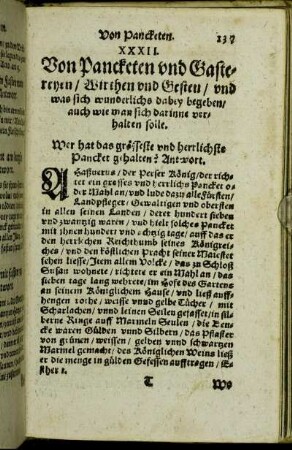 Von Pancketen. 137
XXXII.
Von Pancketen vnd Gaste-
reyen / Wirthen vnd Gesten / vnd
was sich wunderlichs dabey begeben /
auch wie man sich darinne ver-
halten solle.
Wer hat das grösseste vnd herrlichste
Pancket gehalten? Antwort.
AHasuerus / der Perser König / der rich-
tet ein grosses vnd herrlichs Pancket o-
der Mahl an / vnd lude dazu alle Fürsten /
Landpfleger / Gewaltigen vnd obersten
in allen seinen Landen / deret hundert sieben
vnd zwantzig waren / vnd hielt solches Pancket
mit jhnen hundert vnd achtzig tage / auff das er
den herrlichen Reichthumb seines Königrei-
ches / vnd den köstlichen Pracht seiner Maiestet
sehen liesse / Item allem Volcke / das zu Schloß
Susan wohnete / richtete er ein Mahl an / das
sieben tage lang wehrete / im Hofe des Gartens
an seinem Königlichen Hause / vnd ließ auff-
hengen rothe / weisse vnnd gelbe Tücher / mit
Scharlachen / vnnd leinen Seilen gefasset / in sil-
berne Ringe auff Marmeln Seulen / die Ben-
cke waren Gülden vnnd Silbern / das Pflaster
von grünen / weissen / gelben vnnd schwartzen
Marmel gemacht / des Königlichen Weins ließ
er die menge in gülden Gefessen aufftragen / Es-
ther 1.
T Wo